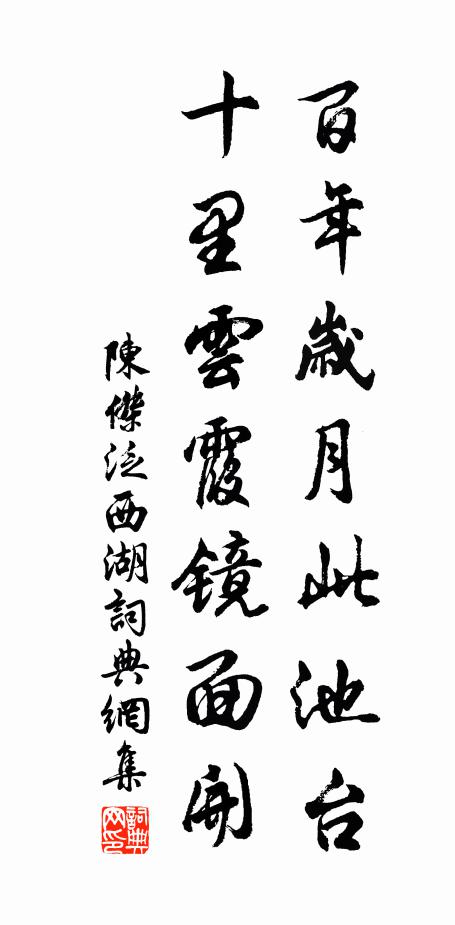 百年歲月此池台
十里雲霞镜面開
陳傑泛西湖詞典網集
詞典網印